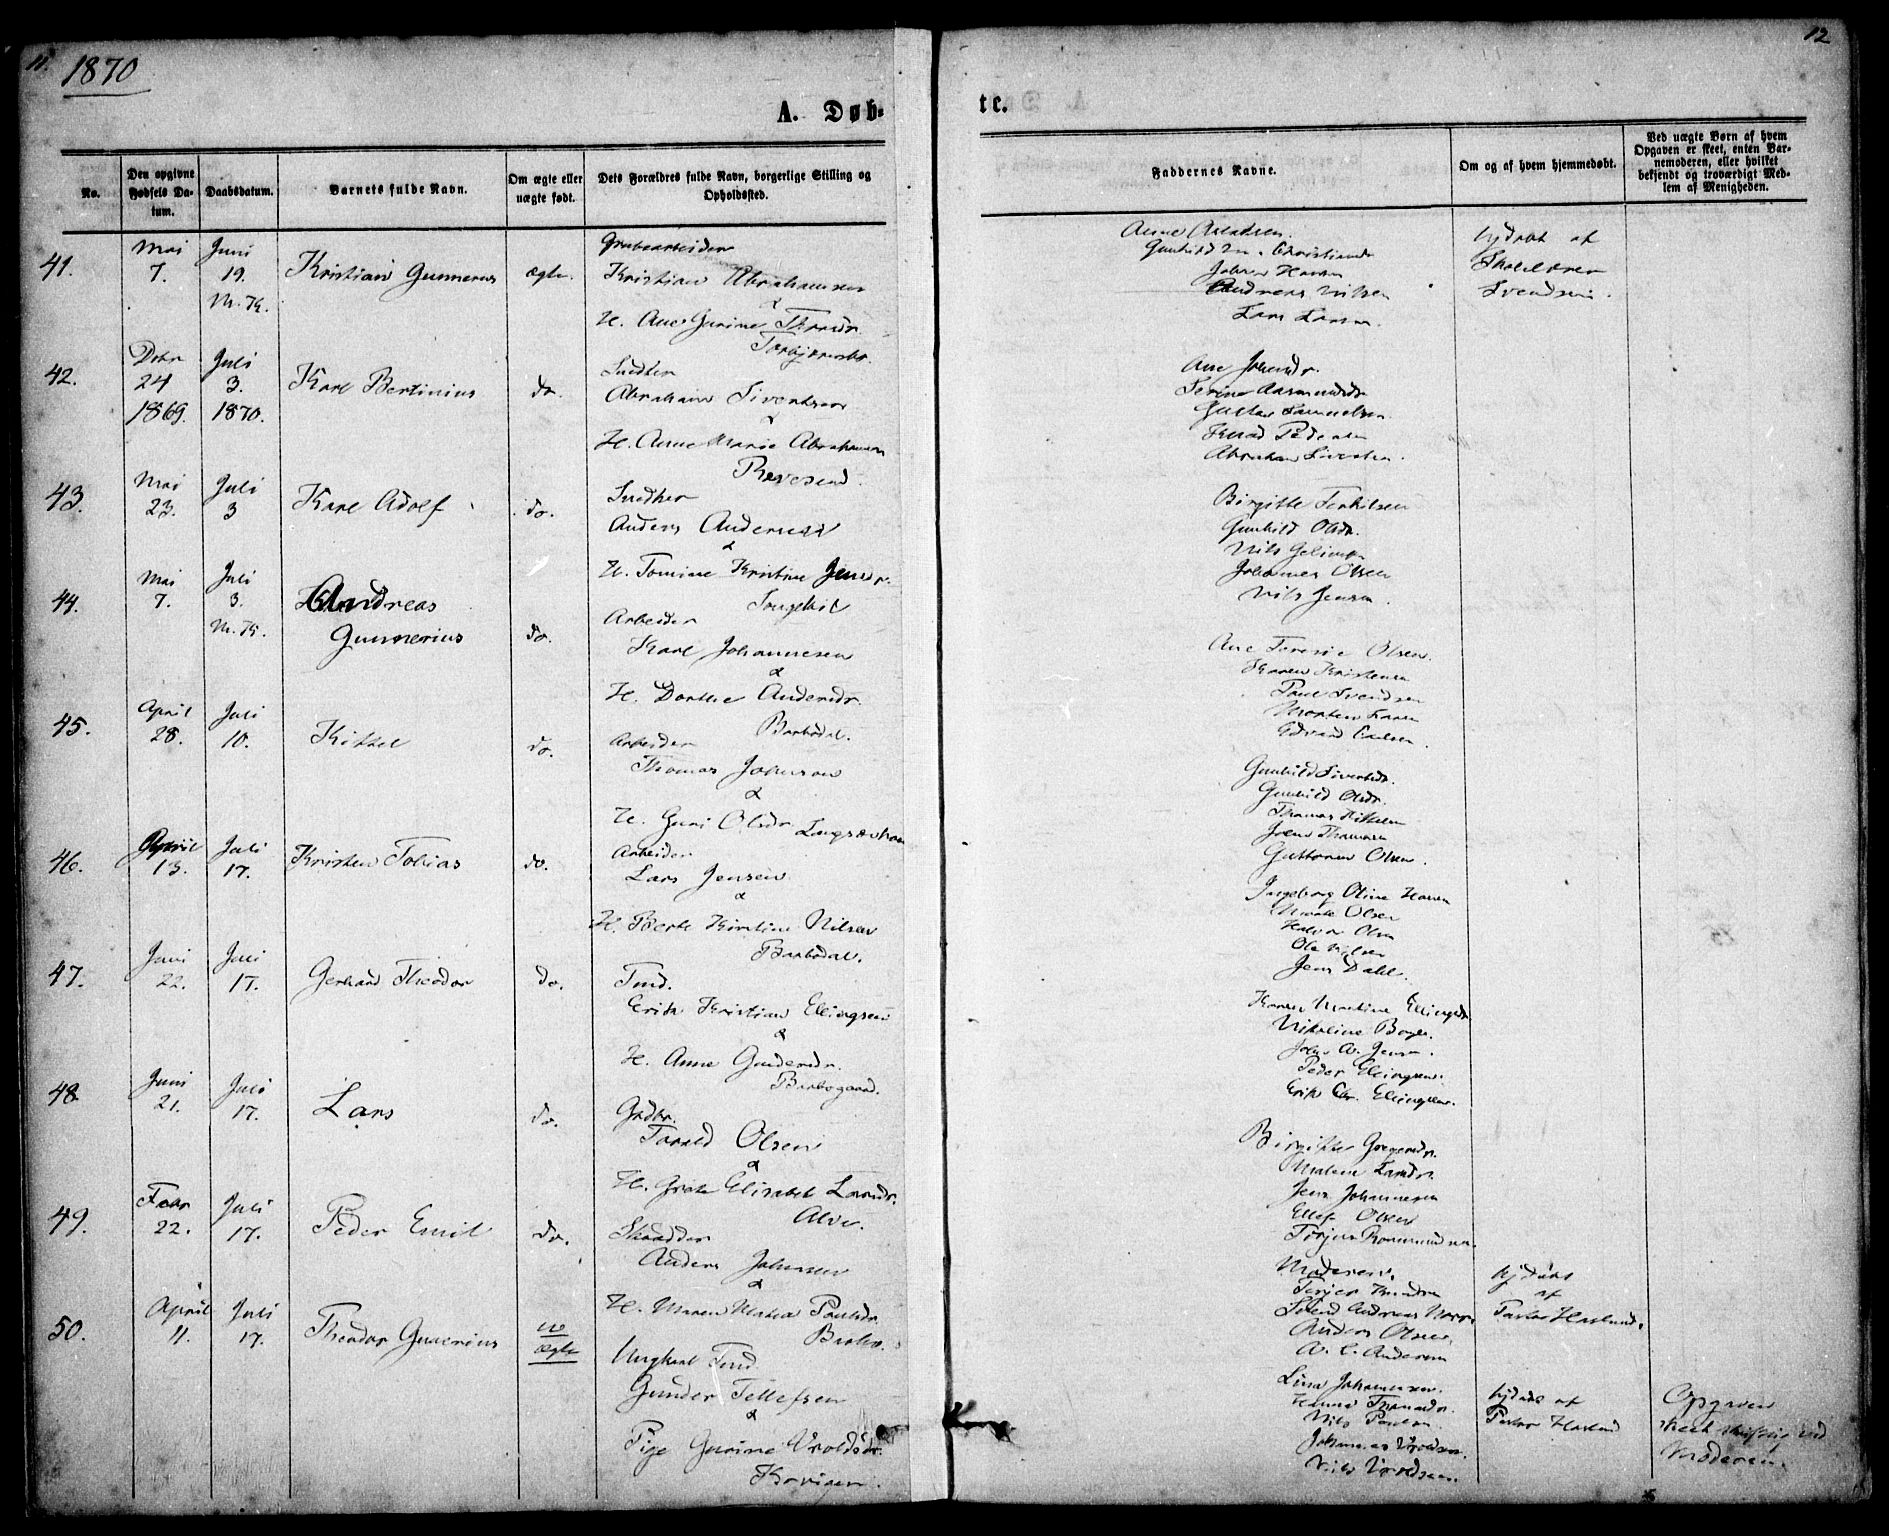 11.
1870
12
A. Døb-
te.
No.
Den opgivne Fødsels Da-tum.
Daabsdatum.
Barnets fulde Navn.
Om ægte eller uægte født.
Dets Forældres fulde Navn, borgerlige Stilling og Opholdssted.
Faddernes Navne.
Om og af hvem hjemmedøbt.
Ved uægte Børn af hvem Opgaven er skeet, enten Bar-nemoderen, eller hvilket bekjendt og troværdigt Med-lem af Menigheden.
41.
Mai
7.
Juni
19.
M. K.
Kristian Gunnerius
ægte.
Grubearbeider
Kristian Abrahamsen
&
H. Ane Gurine
Torbjørnsbo.
Gunhild
Johan Hansen
Andreas Nilsen
Lars Larsen.
hjdøbt af
Skolelærer
Svendsen.
42.
Dcbr
24
1869.
Juli
3.
1870.
Karl Bertinius
do.
Snedker
Abraham Sivertsen
&
H. Anne Marie Abrahamsen
Revesend.
Ane
Serine Aasmundsdr
Gustav Samuelsen
Knud Pedersen
Abraham Sivertsen.
43.
Mai
23.
Juli
3
Karl Adolf
do.
Snedker
Anders Andersen
&
H. Tomine Kristine Jensdr.
Songekil
Birgitte Terkelsen
Gunhild Olsdr.
Nils
Johannes Olsen
Nils Jensen.
44.
Mai
7.
Juli
3.
M. K.
Andreas
Gunnerius
do.
Arbeider
Karl Johannesen
&
H. Dorthe Andersdr.
Barbodal.
Ane Teresie Olsen.
Karen Kristensen
Paul Svendsen
Morten Larsen
Edvard
45.
April
28.
Juli
10.
Kittel
do.
Arbeider
Thomas Johnsen
&
H. Guri Olsdr
Gunhild Sivertsdr.
Gunhild Olsdr.
Thomas Kittelsen
Jens Thomassen
Guttorm Olsen.
46.
April
13.
Juli
17.
Kristen Tobias
do.
Arbeider
Lars Jensen
&
H. Berte Kirstine Nilsen
Barbodal.
Ingeborg Oline Hansen
Olsen
Halvor Olsen
Ole Nilsen
Jens Dahl.
47.
Juni
22.
Juli
17.
Gerhard Theodor
do.
Tmd.
Erik Kristian Ellingsen
&
H. Anne Gundersdr.
Barbogaard.
Karen Martine Ellingsdr
Nikoline Boye.
John A. Jensen.
Peder Ellingsen.
Erik Chr. Ellingsen.
48.
Juni
21.
Juli
17.
Lars
do.
Gdbr.
Tarald Olsen
&
H. Grete Elisabet Larsdr.
Alve.
Birgitte Gregersdr.
Malene Larsdr.
Jens Johannesen
Ellef Olsen
Torjus
49.
Febr
22.
Juli
17.
Peder Emil
do.
Skrædder
Anders Johnsen
&
H. Maren Maria Paulsdr.
Barbo.
Moderen.
Terjer Knudsen
Svend Andreas
Anders Olsen,
A. C. Andersen
hjdøbt
af
Pastor Haslund.
50.
April
11.
Juli
17.
Theodor Gunerius
u
ægte
Ungkarl Tmd.
Gunder Tellefsen
&
Pige Gurine Vroldsdr.
Lina Johannesen.
Hanna
Nils Paulsen.
Johannes Vroldsen.
Nils Vroldsen.
hjdøbt af
Pastor Haslund
Opgaven
skeet skriftlig ved
Moderen.